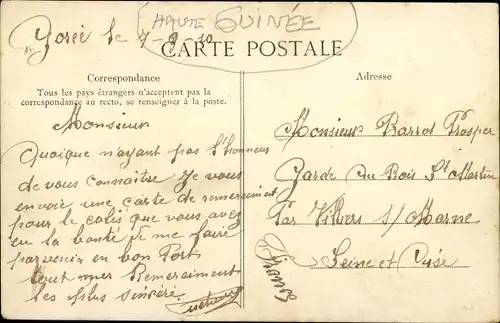 HAUTE GUINÉE
le 7-9-10
CARTE POSTALE
Correspondance
Tous les pays étrangers n'acceptent pas la
correspondance au recto, se renseigner à la poste.
Monsieur
Quoique n'ayant pas l'honneur
de vous connaître Je vous
envoie une carte de remerciement
pour le colis que vous avez
eu la bonté de me faire
parvenir en bon Port
tout mes Remerciment
les plus sincère.
Adresse
Monsieur Barrot Prosper
Garde du Bois St Martin
Par Villiers s/ Marne
Seine et Oise
France